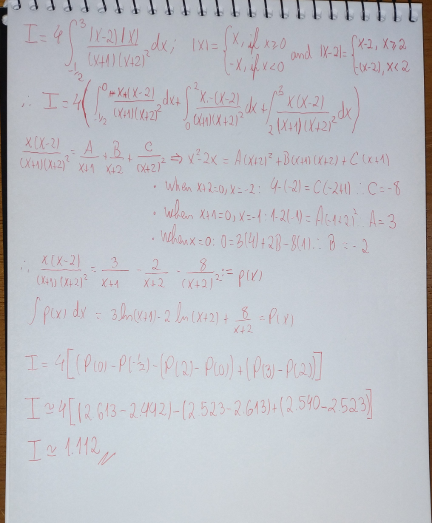 I = 4 ∫_{-1/2}^{3} |x-2||x| / (x+1)(x+2)² dx; |x| = {x, if x≥0 -x, if x<0 and |x-2| = {x-2, x≥2 -(x-2), x<2
∴ I = 4(∫_{-1/2}^{0} +x(x-2) / (x+1)(x+2)² dx + ∫_{0}^{2} x·-(x-2) / (x+1)(x+2)² dx + ∫_{2}^{3} x(x-2) / (x+1)(x+2)² dx)
x(x-2) / (x+1)(x+2)² = A / x+1 + B / x+2 + C / (x+2)² ⇒ x²-2x = A(x+2)² + B(x+1)(x+2) + C(x+1)
• when x+2=0, x=-2: 4-2(-2) = C(-2+1) ∴ C=-8
• when x+1=0, x=-1: 1-2(-1) = A(-1+2)² A=3
• when x=0: 0=3(4)+2B-8(1) ∴ B=-2
∴ x(x-2) / (x+1)(x+2)² = 3 / x+1 - 2 / x+2 - 8 / (x+2)² := p(x)
∫p(x) dx = 3ln(x+1)-2ln(x+2) + 8 / x+2 = P(x)
I = 4[(P(0)-P(-½)-(P(2)-P(0))+(P(3)-P(2))]
I ≃ 4[(2.613-2.492)-(2.523-2.613)+(2.590-2.523)]
I ≃ 1.112